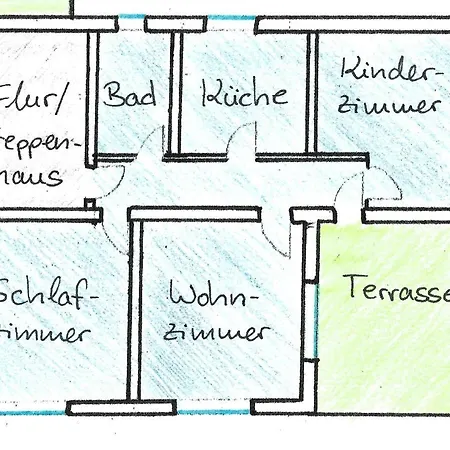 Flur/
Treppen-
haus
Bad
Küche
Kinder-
zimmer
Schlaf-
zimmer
Wohn-
zimmer
Terrasse